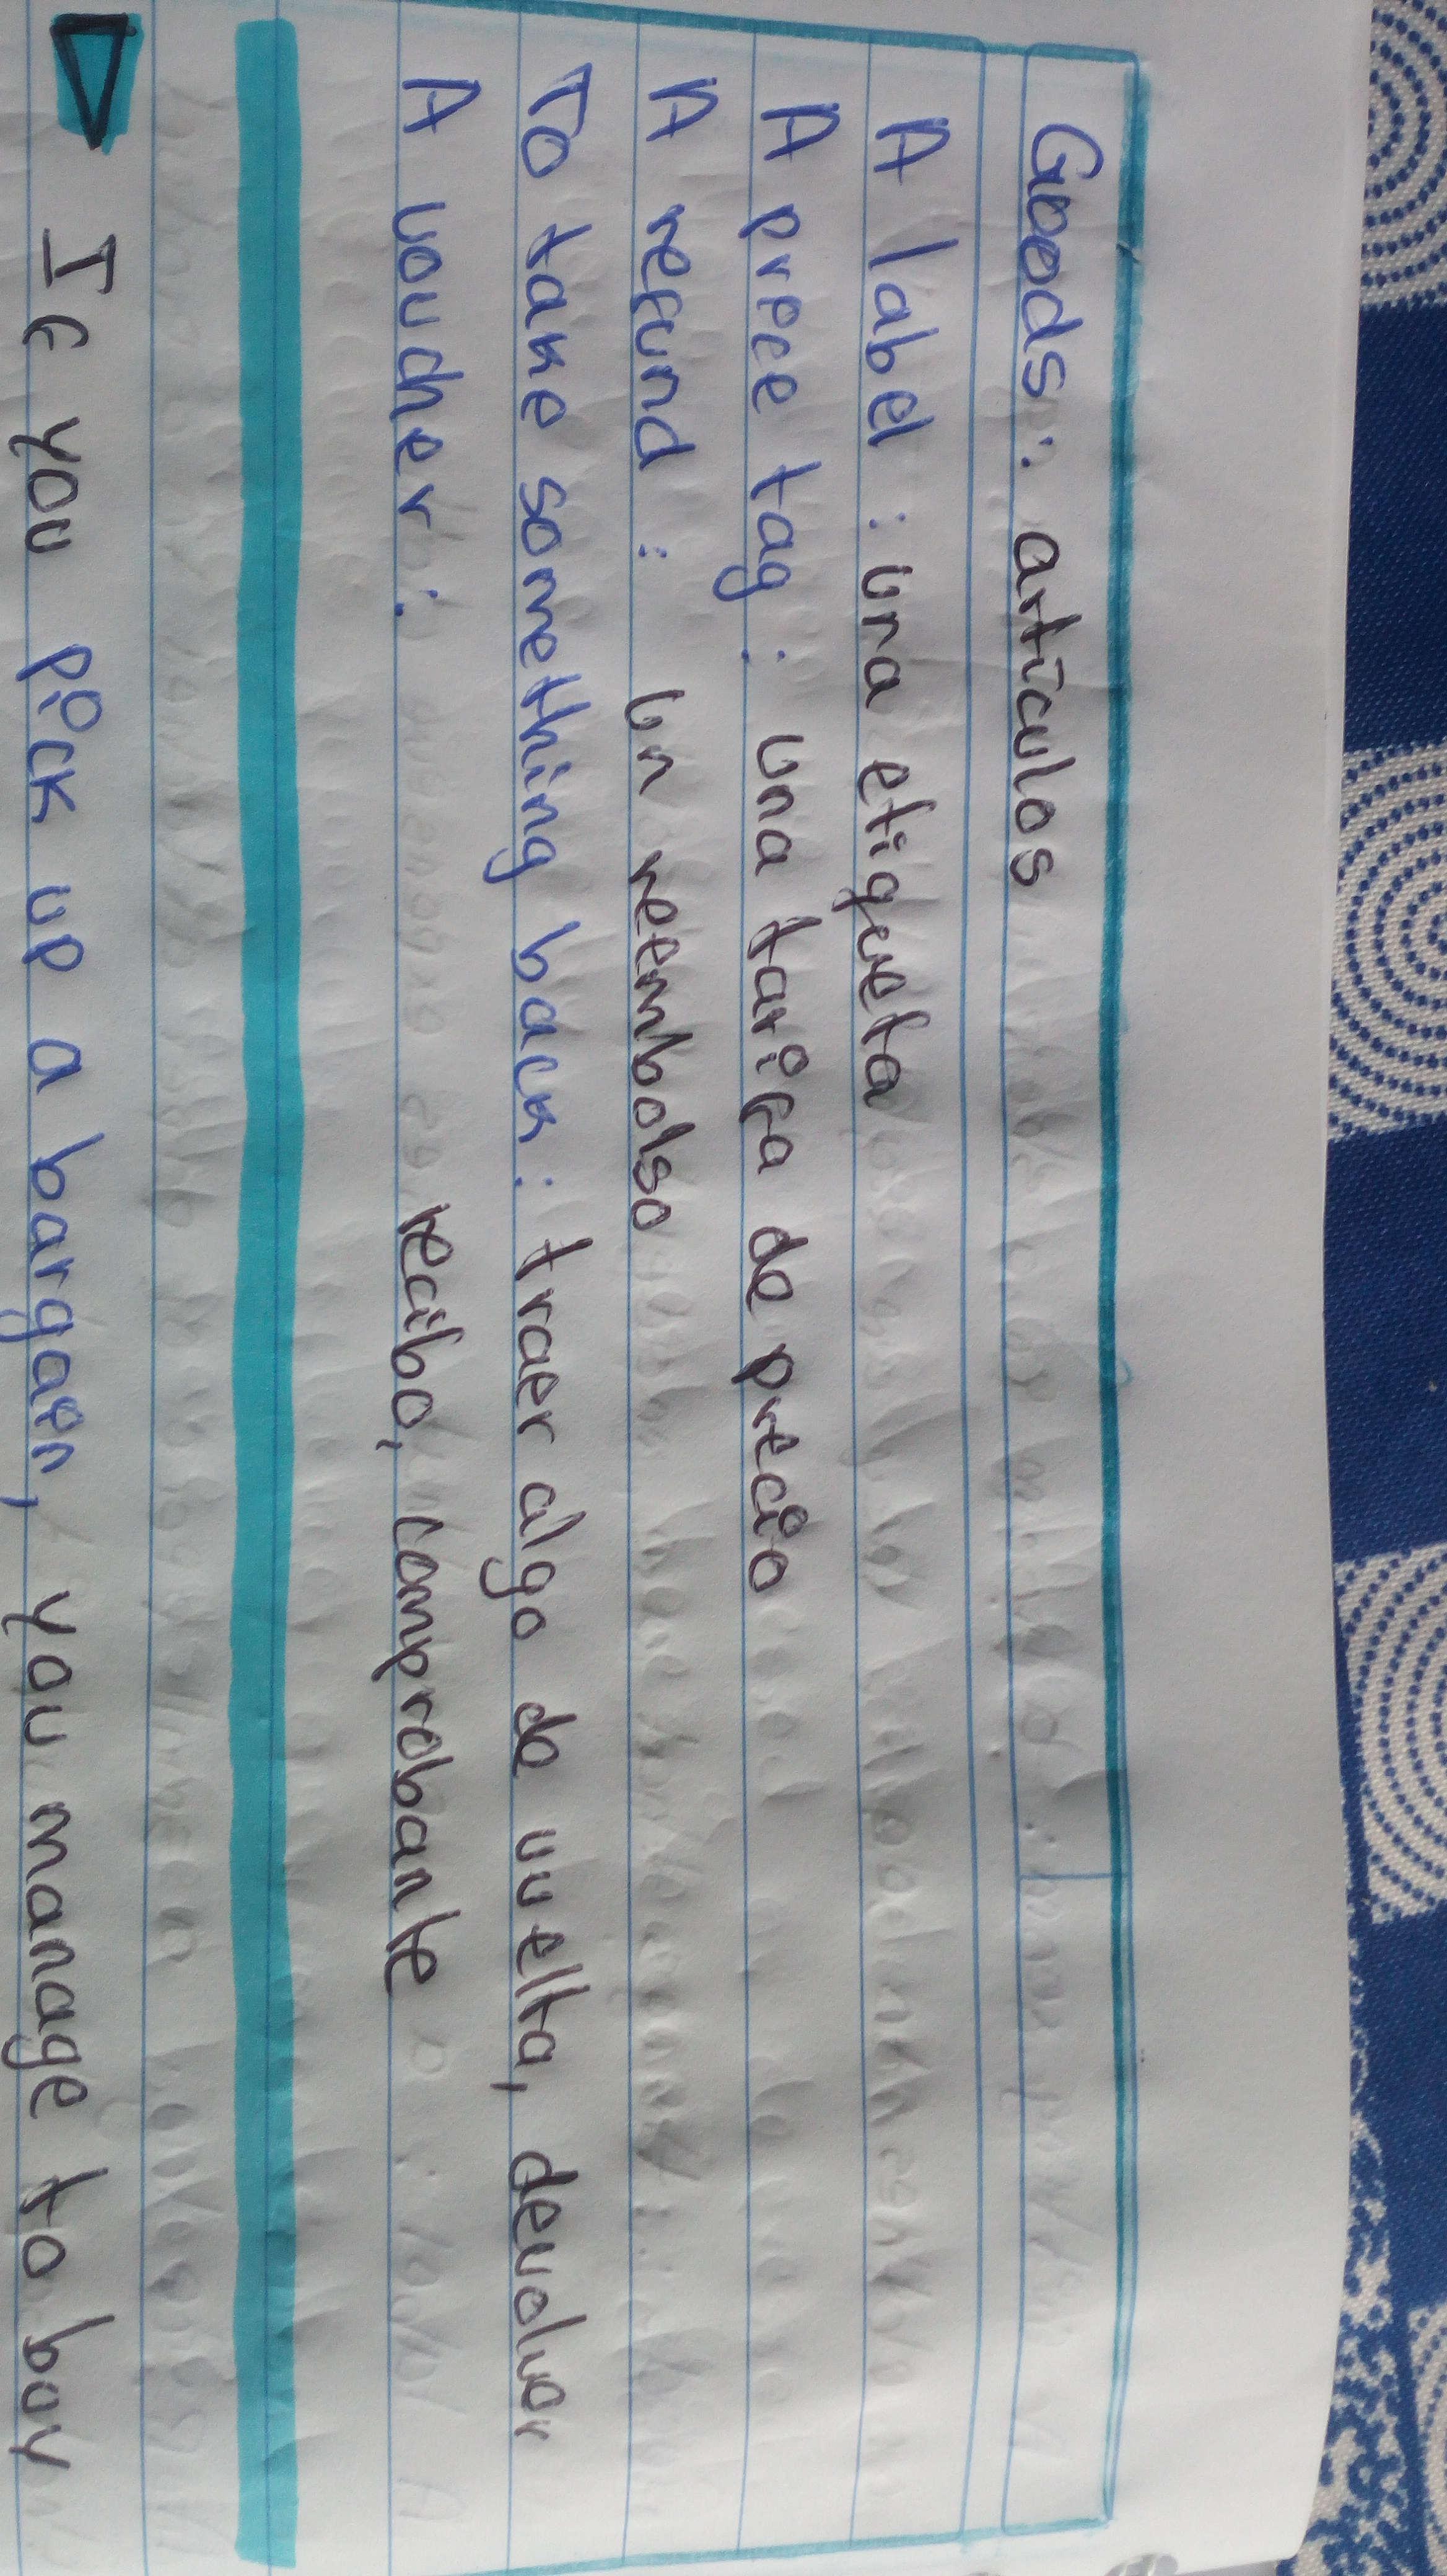 Goods: artículos
A label : una etiqueta
A price tag : una tarifa de precio
A refund : un reembolso
To take something back : traer algo de vuelta, devolver
A voucher : recibo, comprobante
If you pick up a bargain, you manage to buy